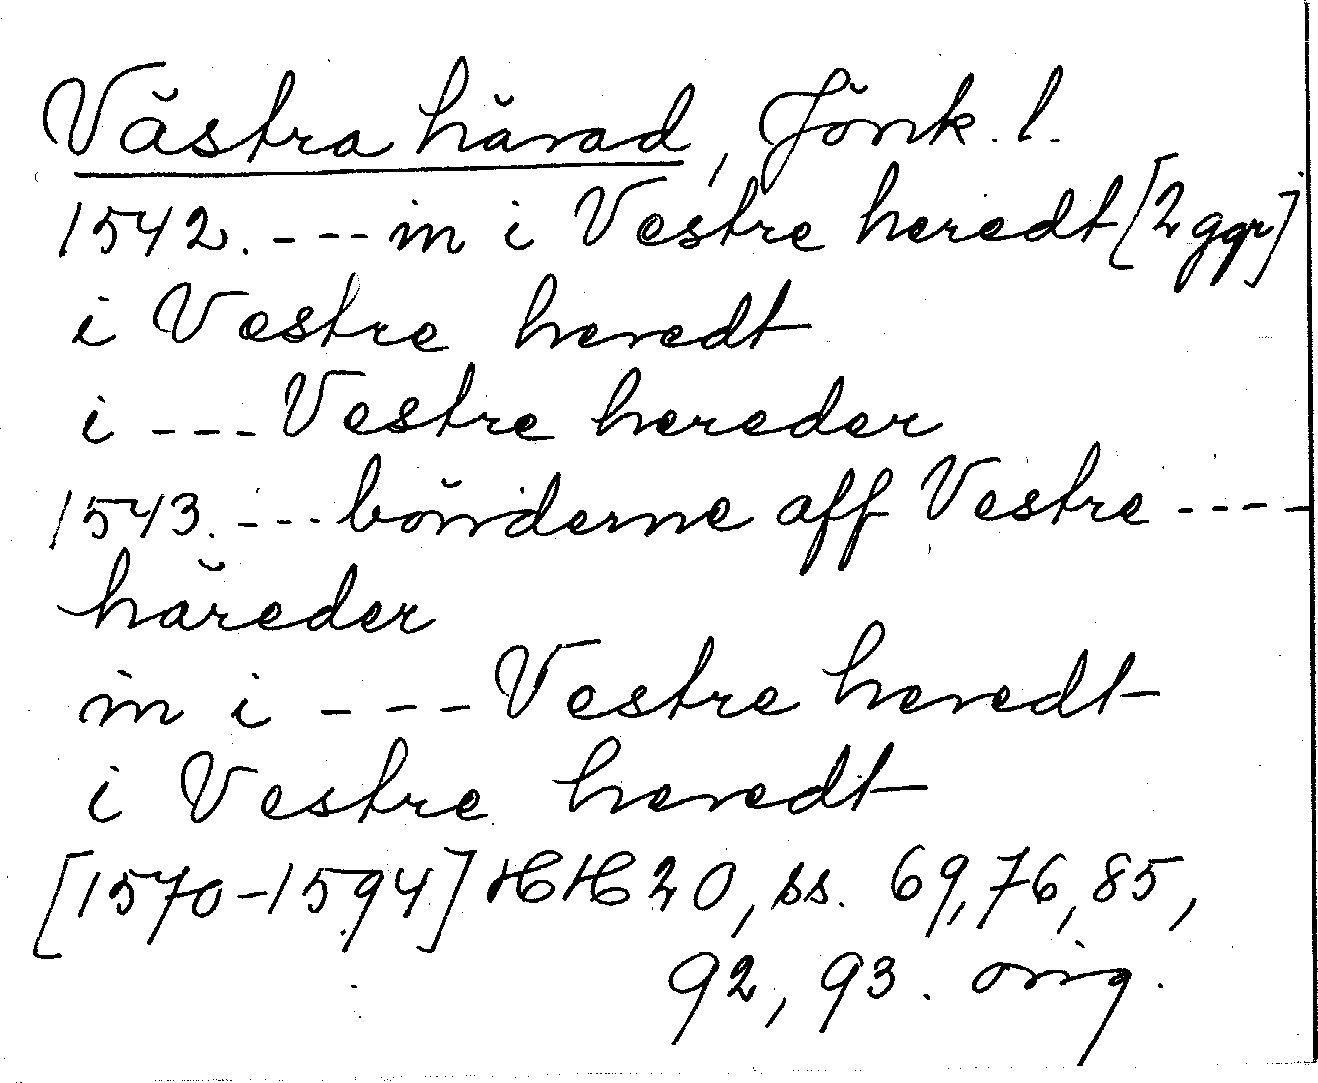 Västra härad, Jönk. l.
1542. - - - in i Vestre heredt [2 ggr]
i Vestre heredt
i - - - Vestre hereder
1543. - - - bönderne aff Vestre - - - -
häreder
in i - - - Vestre heredt
i Vestre heredt
[1570-1594] HH 20, ss. 69, 76, 85,
92, 93. orig.